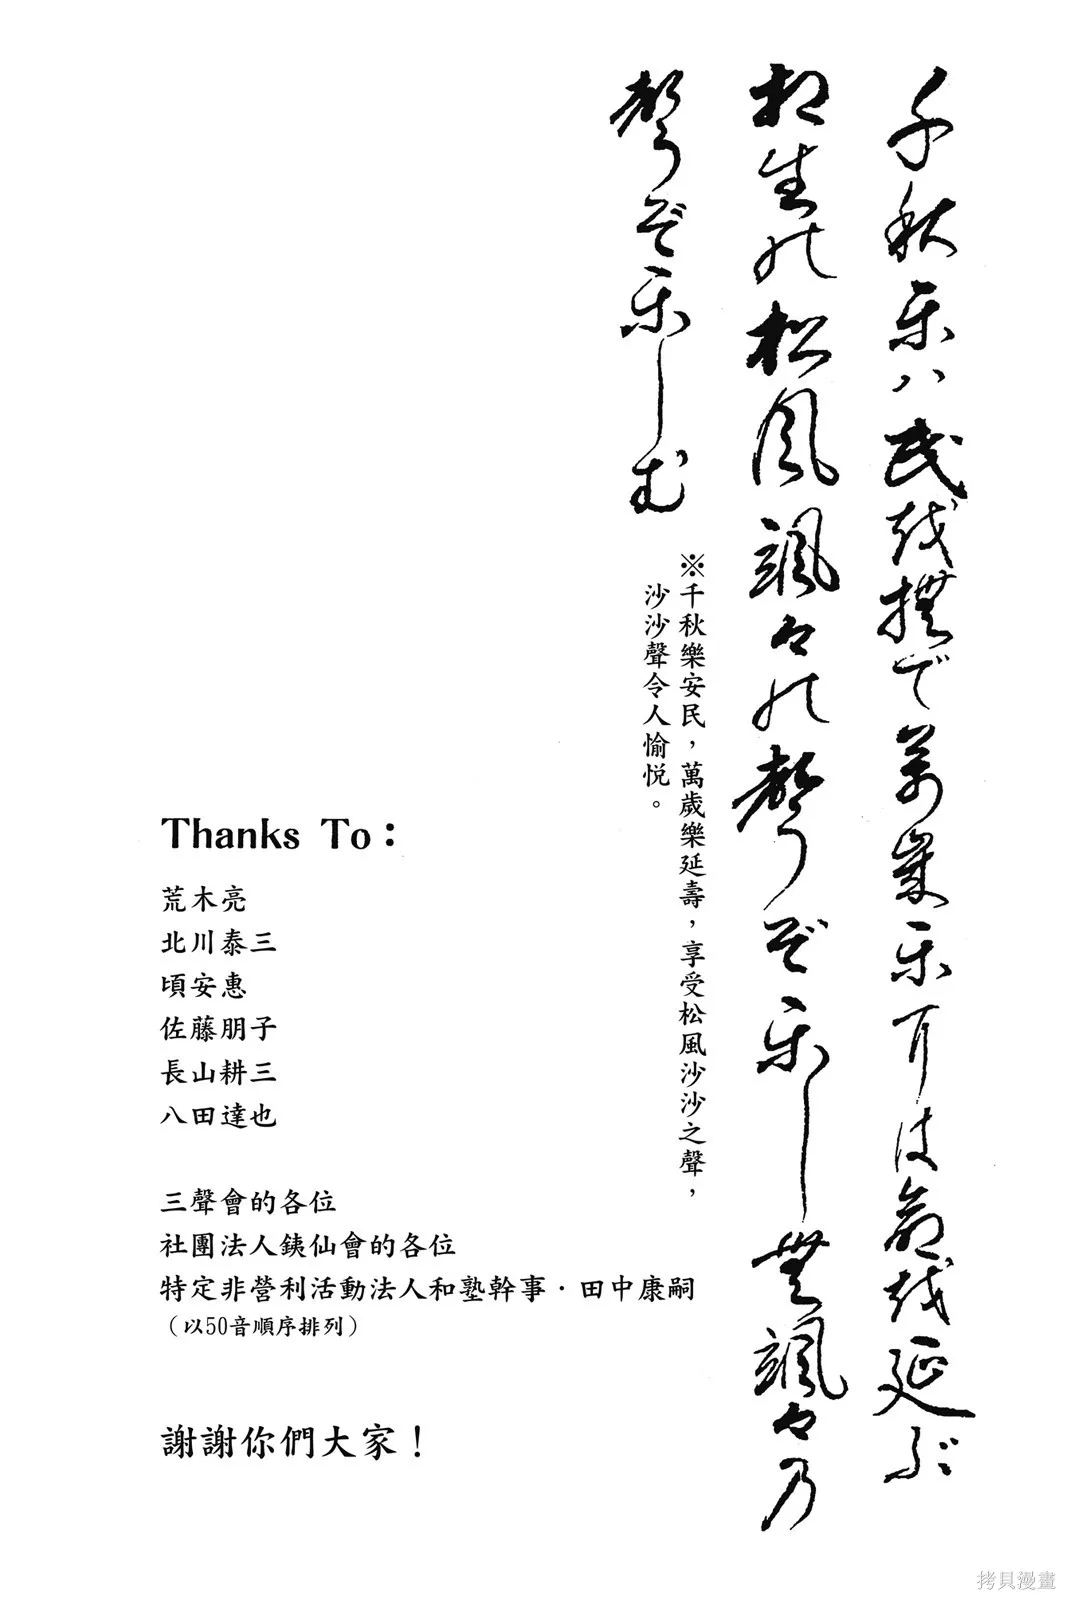 千秋乐八民越撫で萬歳乐耳は命越延ぶ
相生能松風颯々能聲ぞ乐し無颯々乃
聲ぞ乐しむ
※千秋樂安民，萬歲樂延壽，享受松風沙沙之聲，
沙沙聲令人愉悅。
Thanks To：
荒木亮
北川泰三
頃安惠
佐藤朋子
長山耕三
八田達也
三聲會的各位
社團法人銕仙會的各位
特定非營利活動法人和塾幹事・田中康嗣
（以50音順序排列）
謝謝你們大家！
拷貝漫畫